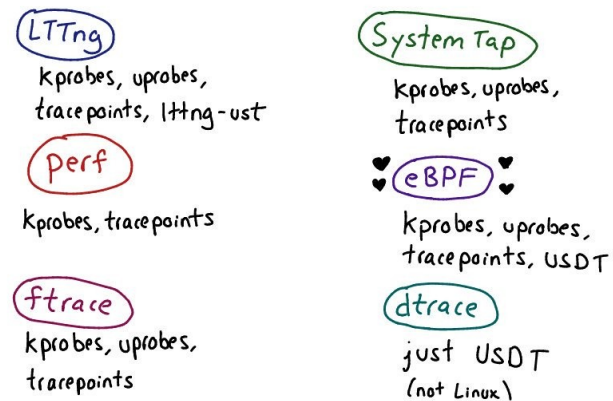 LTTng
kprobes, uprobes,
tracepoints, lttng-ust
perf
kprobes, tracepoints
ftrace
kprobes, uprobes,
tracepoints
SystemTap
kprobes, uprobes,
tracepoints
eBPF
kprobes, uprobes,
tracepoints, USDT
dtrace
just USDT
(not Linux)